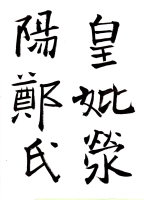 皇妣滎
陽鄭氏